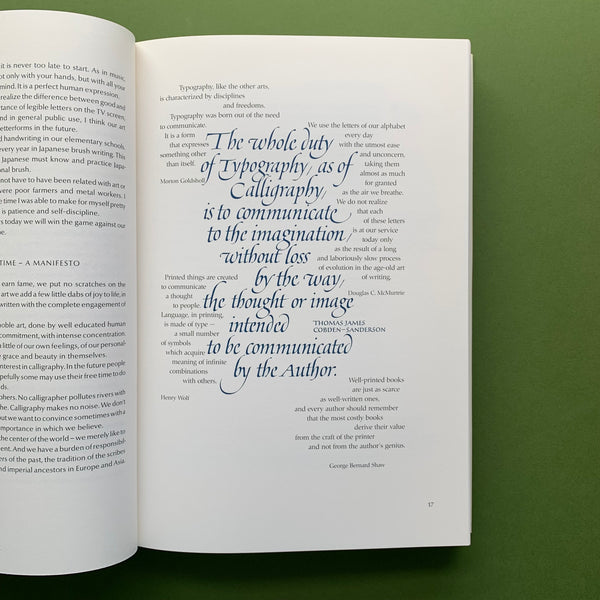 it is never too late to start. As in music,
not only with your hands, but with all your
mind. It is a perfect human expression.
realize the difference between good and
rtance of legible letters on the TV screen,
and in general public use, I think our art
etterforms in the future.
d handwriting in our elementary schools.
every year in Japanese brush writing. This
Japanese must know and practice Japa-
onal brush.
not have to have been related with art or
were poor farmers and metal workers. I
e time I was able to make for myself pretty
is patience and self-discipline.
s today we will win the game against our
pe.
TIME – A MANIFESTO
earn fame, we put no scratches on the
art we add a few little dabs of joy to life, in
written with the complete engagement of
noble art, done by well educated human
commitment, with intense concentration.
little of our own feelings, of our personal-
grace and beauty in themselves.
interest in calligraphy. In the future people
pefully some may use their free time to do
ds.
phers. No calligrapher pollutes rivers with
Calligraphy makes no noise. We don't
ut we want to convince sometimes with a
importance in which we believe.
the center of the world – we merely like to
ent. And we have a burden of responsibil-
ers of the past, the tradition of the scribes
and imperial ancestors in Europe and Asia.
Typography, like the other arts,
is characterized by disciplines
and freedoms.
Typography was born out of the need
to communicate.
It is a form
that expresses
something other
than itself.
Morton Goldsholl
We use the letters of our alphabet
every day
with the utmost ease
and unconcern,
taking them
almost as much
for granted
as the air we breathe.
We do not realize
that each
of these letters
is at our service
today only
as the result of a long
and laboriously slow process
of evolution in the age-old art
of writing.
Douglas C. McMurtrie
The whole duty
of Typography, as of
Calligraphy,
is to communicate
to the imagination,
without loss
by the way,
the thought or image
intended
to be communicated
by the Author.
THOMAS JAMES
COBDEN–SANDERSON
Printed things are created
to communicate
a thought
to people.
Language, in printing,
is made of type –
a small number
of symbols
which acquire
meaning of infinite
combinations
with others.
Henry Wolf
Well-printed books
are just as scarce
as well-written ones,
and every author should remember
that the most costly books
derive their value
from the craft of the printer
and not from the author's genius.
George Bernard Shaw
17